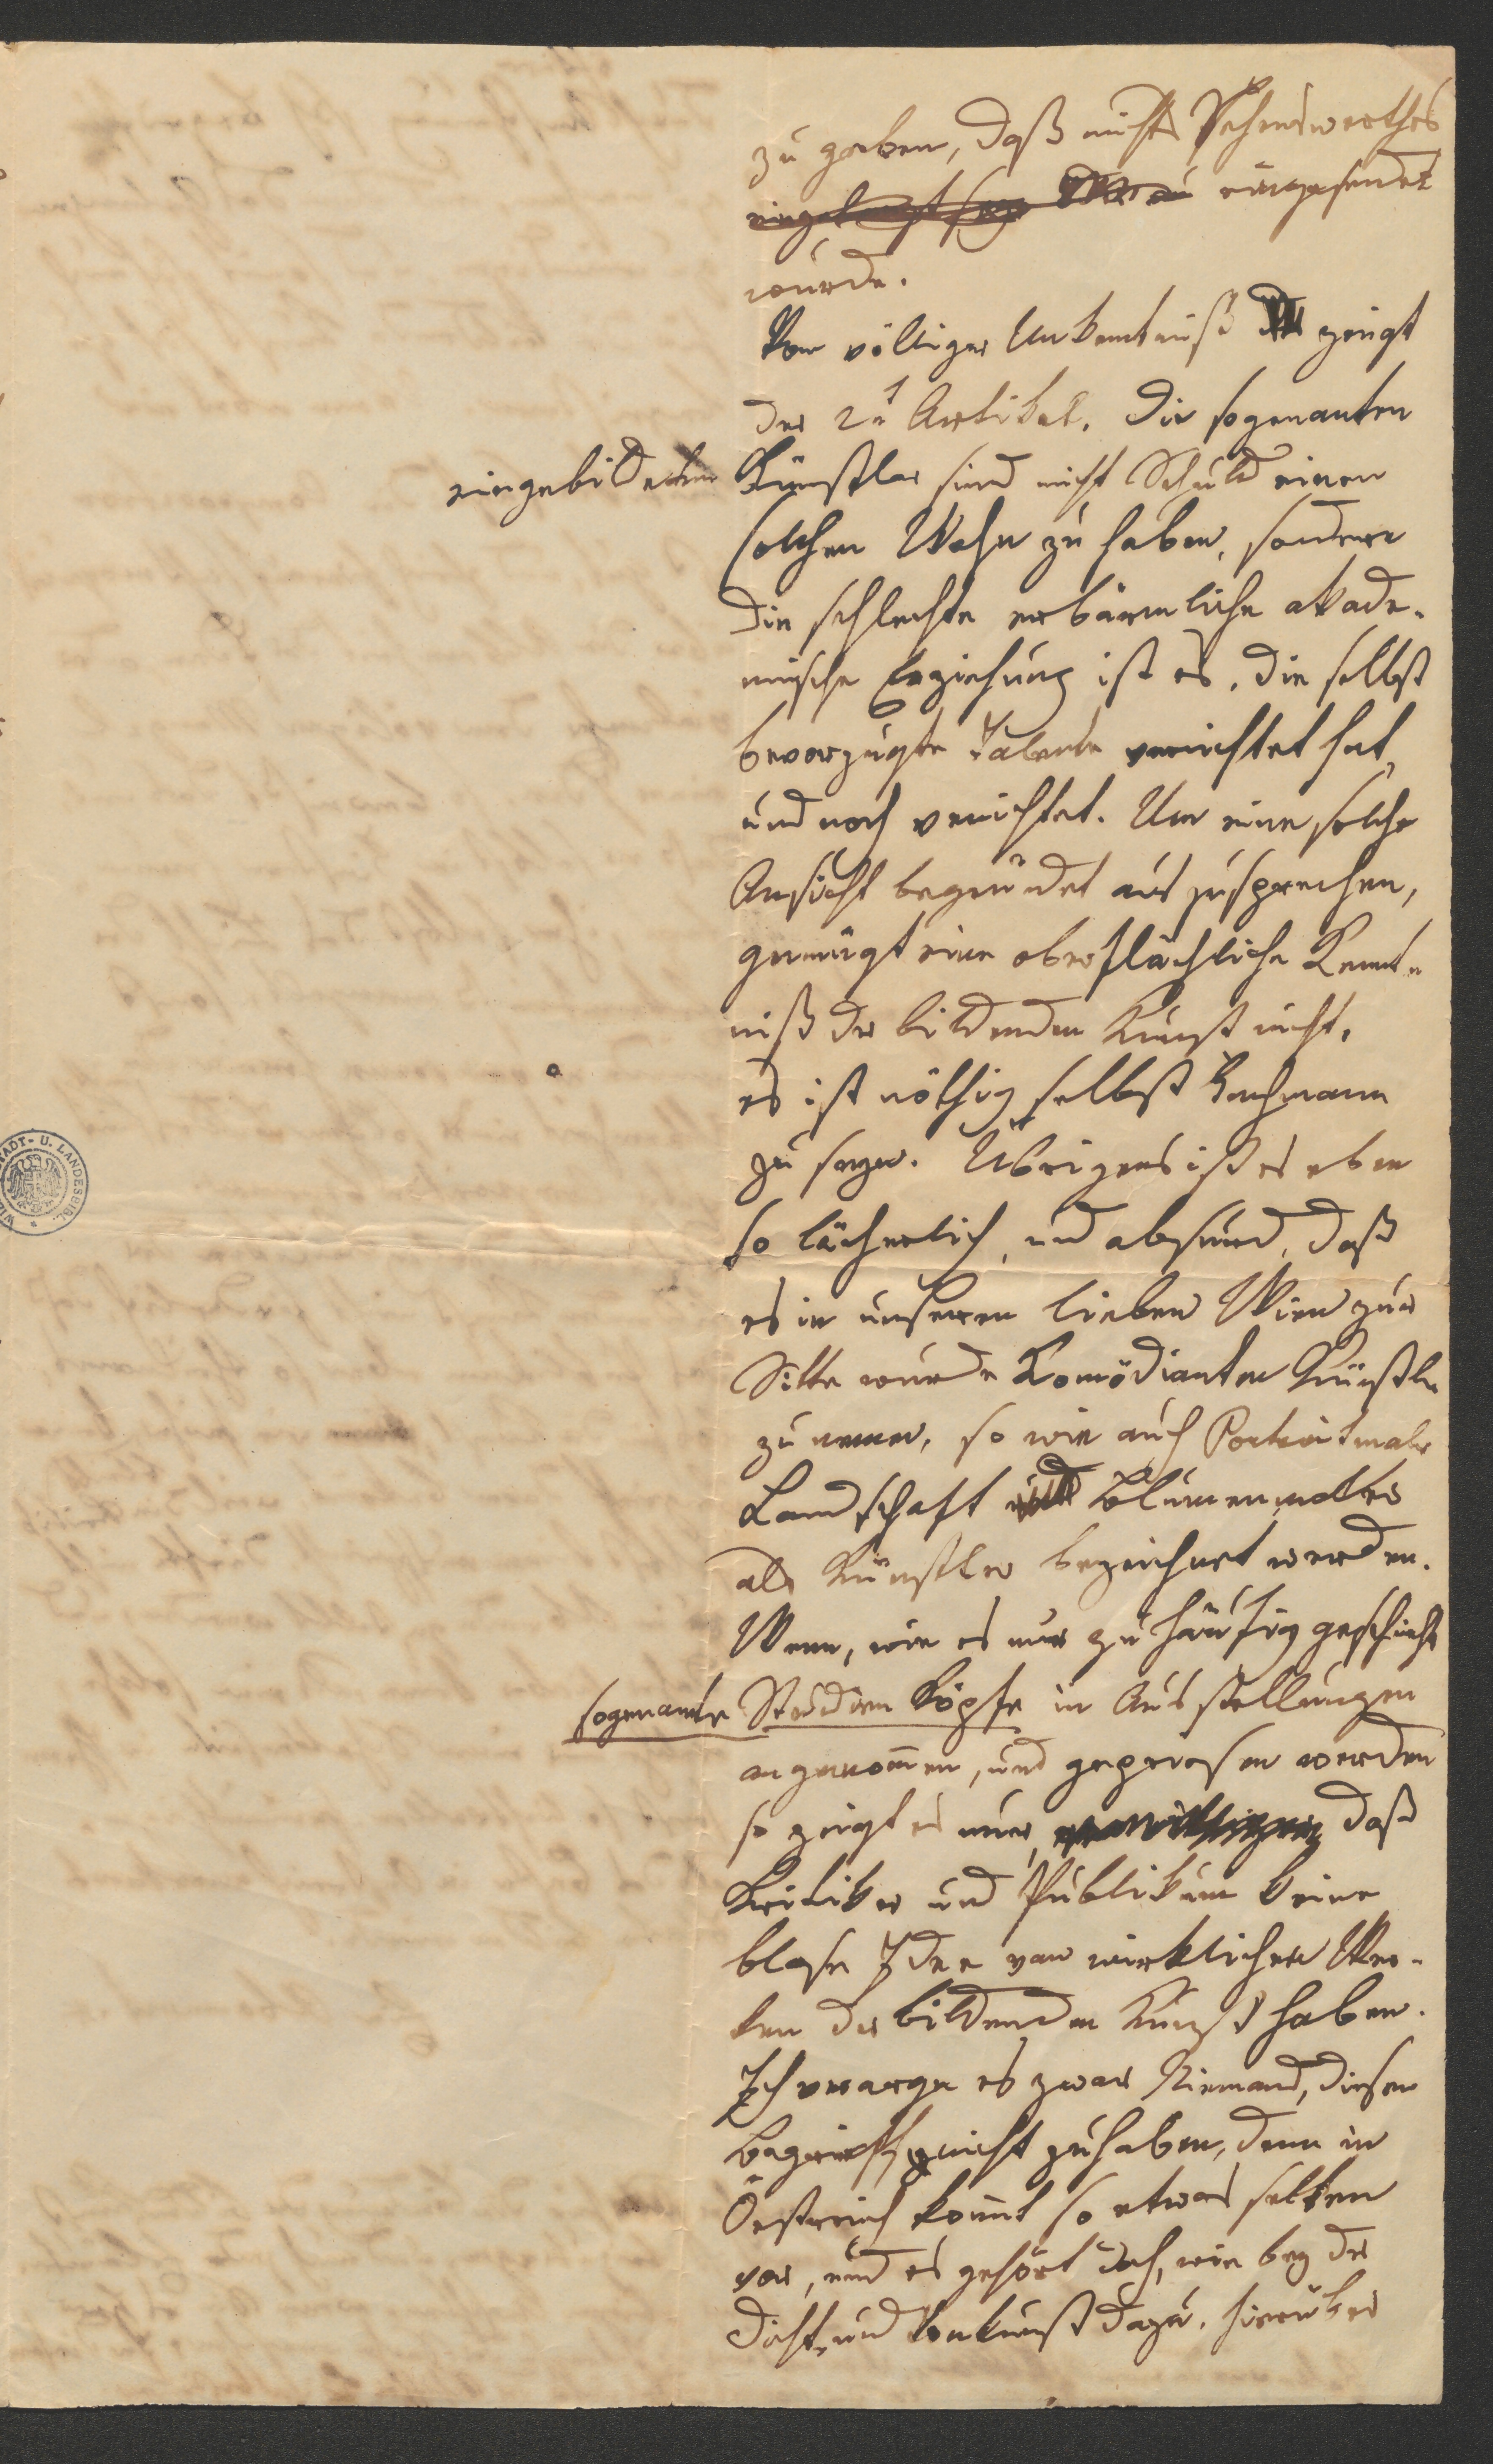 zu geben, daß nichts Sehenswerthes
eingesendet
wurde.
Von völliger Unkentniß zeigt
der 2t Artikel. Die sogenanten
eingebildeten Künstler sind nicht Schuld einen
solchen Wahn zu haben, sondern
die schlechte erbärmliche akade-
mische Erziehung ist es, die selbst
bevorzugte Talente vernichtet hat,
und noch vernichtet. Um eine solche
Ansicht begründet auszusprechen,
genügt eine oberflächliche Kennt-
niß der bildenden Kunst nicht,
es ist nöthig selbst Fachmann
zu seyn. Übrigens ist es eben
so lächerlich, und absurd, daß
es in unserem lieben Wien zur
Sitte wurde Komödianten Künstler
zu nennen, so wie auch Portraitmaler
Landschaft und Blumenmaler
als Künstler bezeichnet werden.
Wenn, wie es nur zu häufig geschieht
sogenante Studien Köpfe in Ausstellungen
angenommen, und gepriesen werden
so zeigt es nur, daß
Kritiker und Publikum keine
blose Idee von wirklichen Wer-
ken der bildenden Kunst haben.
Ich verarge es zwar Niemand, diesen
Begriff nicht zu haben, denn in
Oestreich kommt so etwas selten
vor, und es gehört doch, wie bey der
Dicht und Tonkunst dazu, hierüber
STADT- U. LANDESBIBL.